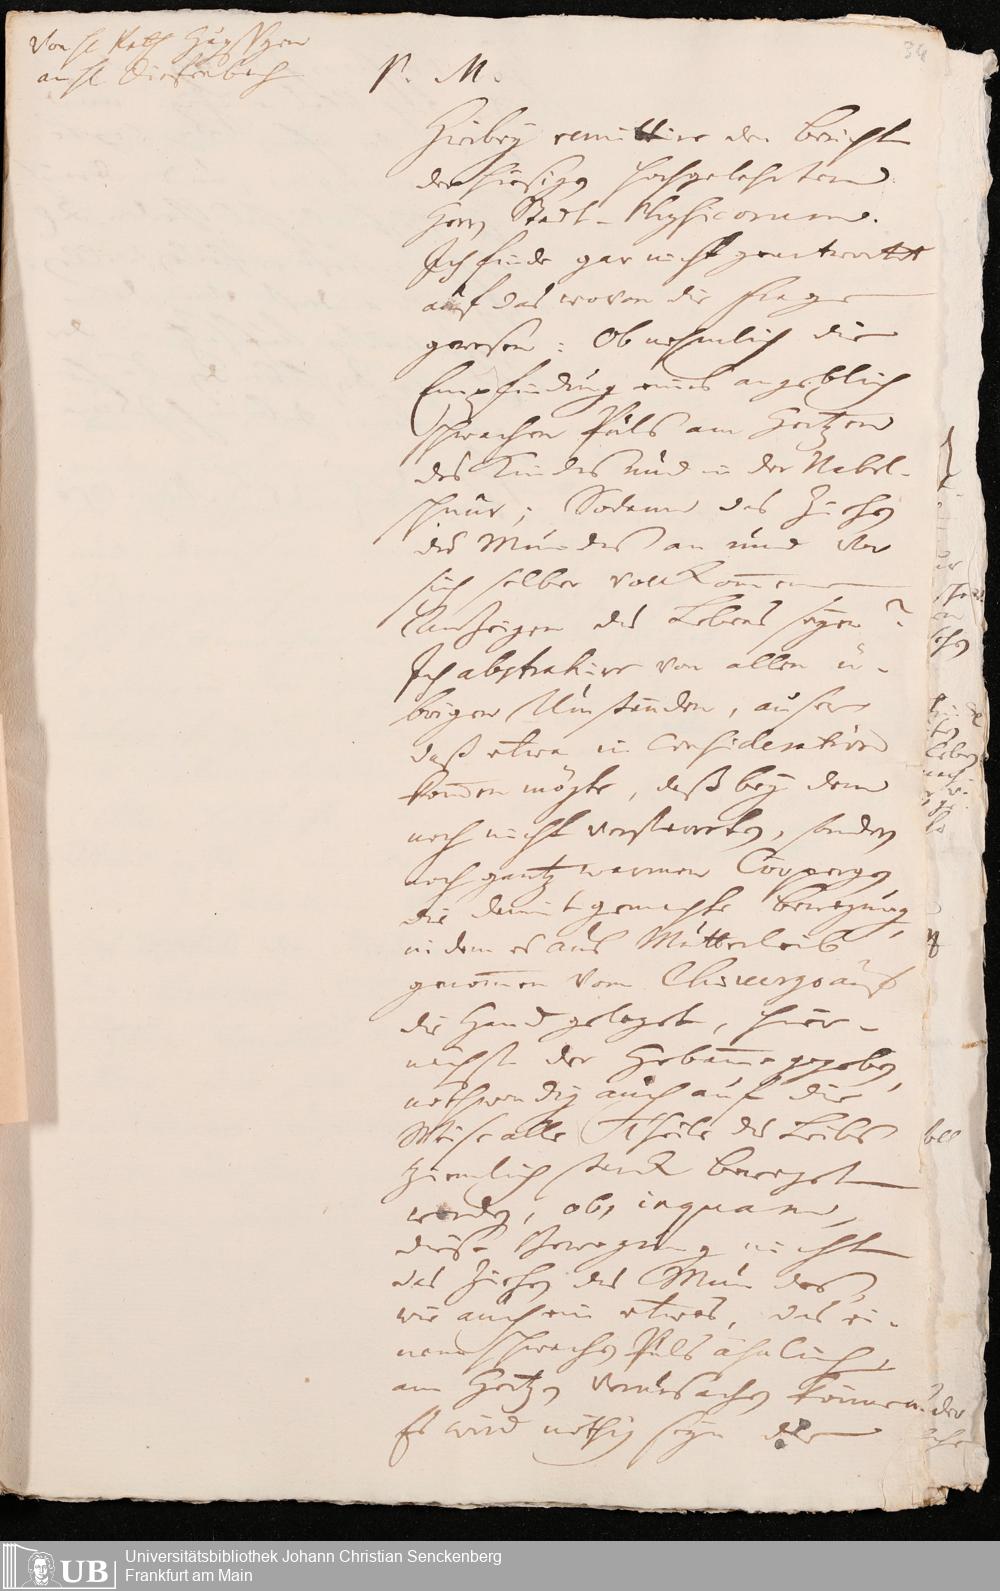 Von H. Rath Hüysgen
an H. Diefenbach
34
P. M.
Hierbey remittire den Bericht
der hiesigen hochgelehrten
Herrn Stadt-Physicorum.
Ich finde gar nicht geantwortet
auf das wovon die Frage
gewesen: Ob nehmlich die
Empfindung eines angeblich
schwachen Puls am Hertzen
des Kindes und in der Nabel-
schnur; Sodann das Ziehen
des Mundes an und vor
sich selber vollkommene
Anzeigen des Lebens seyen?
Ich abstrahire von allen ü-
brigen Umständen, auser
daß etwa in Consideration
kommen mögte, daß bey dem
noch nicht erstarrten, sondern
noch gantz warmen Cörpergen
die damit gemachte Bewegung,
indem es aus Mutterleib
genommen vom Chirurgo auf
die Hand geleget, hier-
nächst der Hebamme gegeben,
nothwendig auch auf die
Weise alle Theile des Leibs
ziemlich starck beweget
worden, ob, inquam,
diese Bewegung nicht
das Ziehen des Mundes,
wie auch ein etwas, das ei-
nem schwachen Puls ähnlich,
am Hertzen verursachen können?
Es wird nöthig seyn der
UB
Universitätsbibliothek Johann Christian Senckenberg
Frankfurt am Main